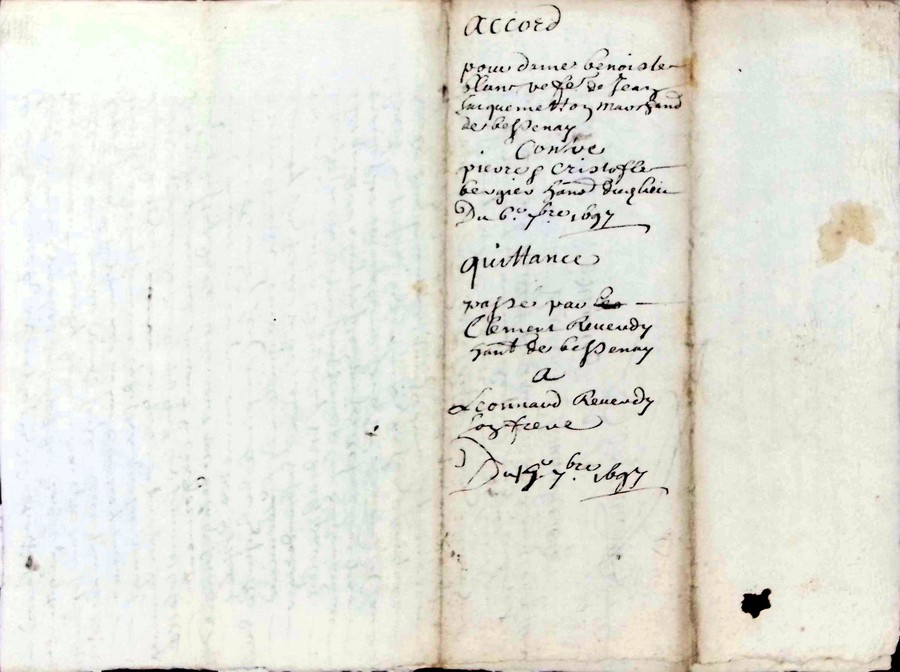 accord
pour dame benoiste
blanc vefe de Jean
Jacquemetton marchand
de bessenay
Contre
pierre & cristofle
bergier hand dudlieu
Du 6e 7bre 1697
quittance
passe par
Clement Reverdy
hant de bessenay
a
Leonnard Reverdy
son frere
Du 7bre 1697